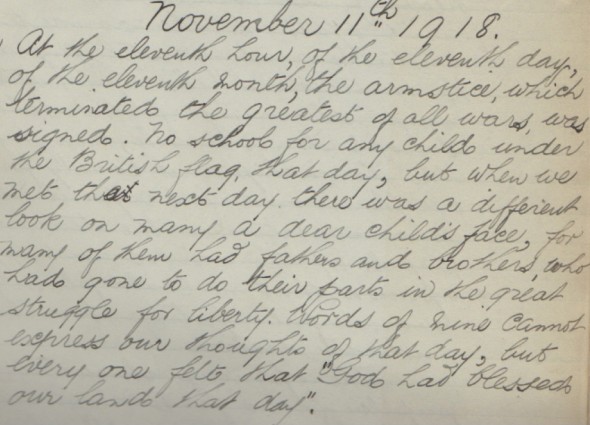 November 11th 1918.
At the eleventh hour, of the eleventh day,
of the eleventh month, the armstice, which
terminated the greatest of all wars, was
signed. No school for any child under
the British flag, that day, but when we
met that next day there was a different
look on many a dear child's face, for
many of them had fathers and brothers, who
had gone to do their parts in the great
struggle for liberty. Words of mine cannot
express our thoughts of that day, but
every one felt, that "God had blessed
our land that day".